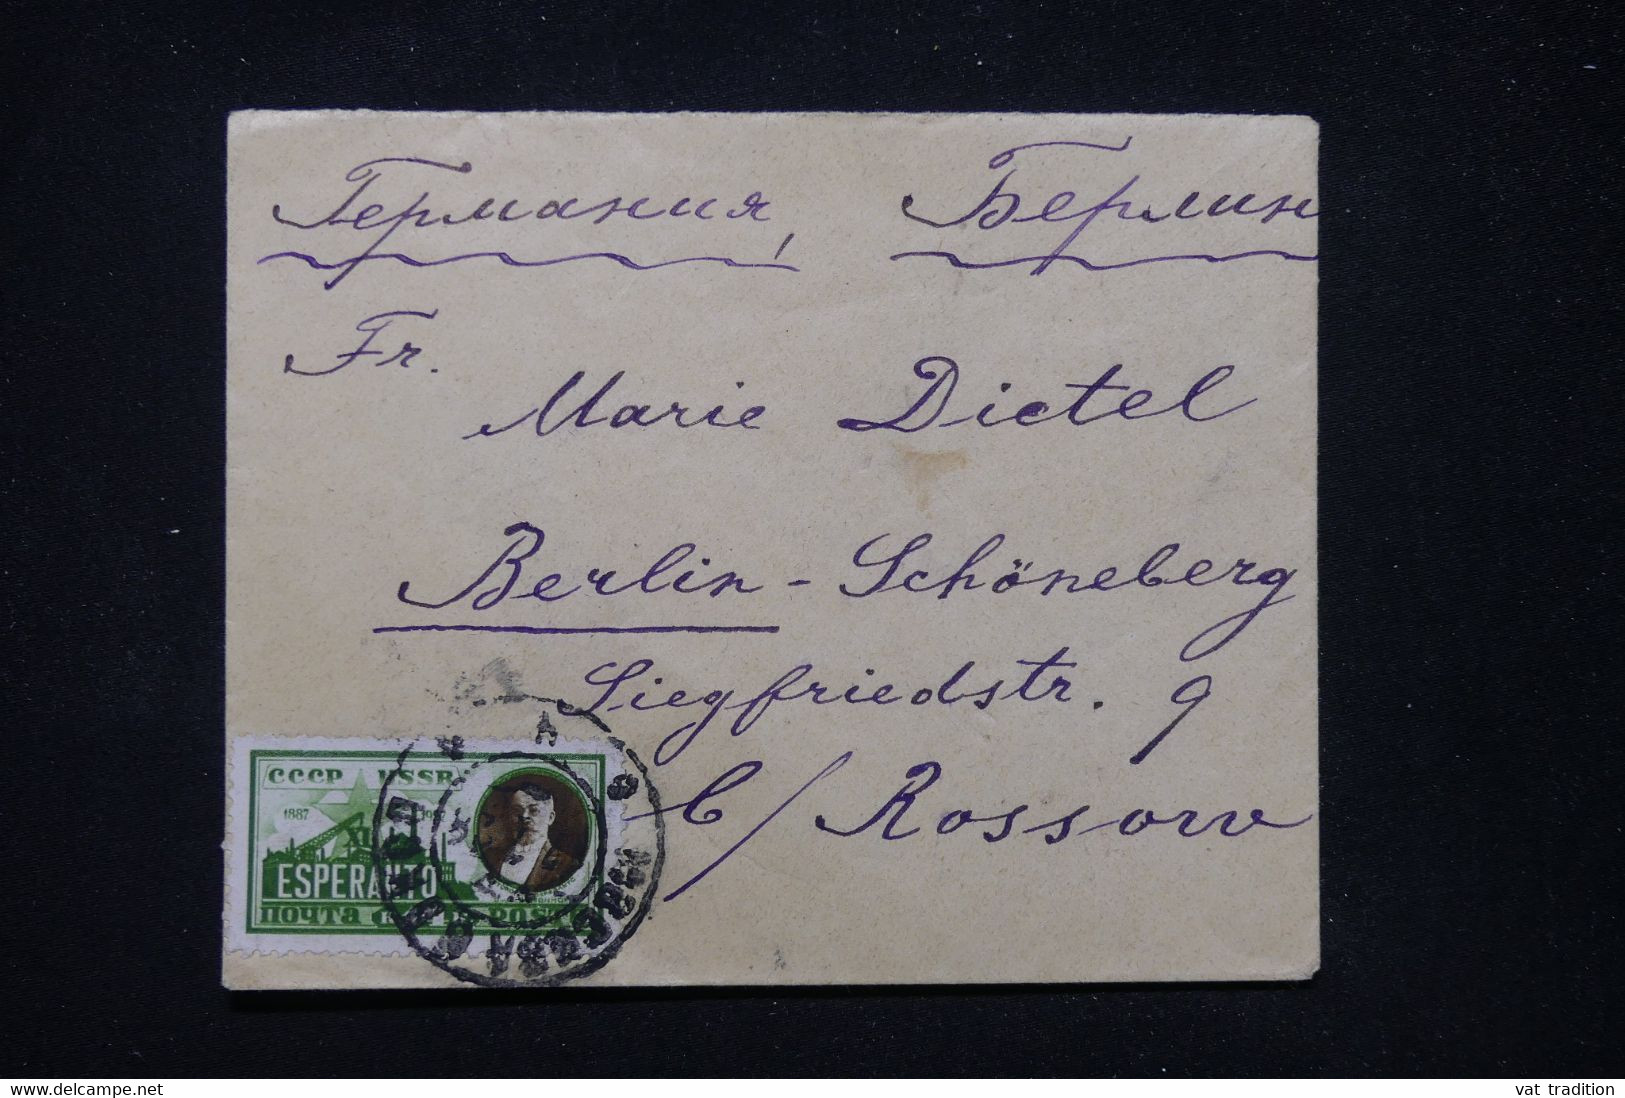 Германия, Берлин
Fr.
Marie Dietel
Berlin-Schöneberg
Siegfriedstr. 9
b/Rossow
СССР USSR
1887
ESPERANTO
ПОЧТА POSTO
МОСКВА
www.delcampe.net
vat tradition